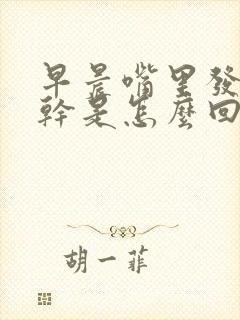 早晨嘴里發
幹是怎麼回
胡一菲